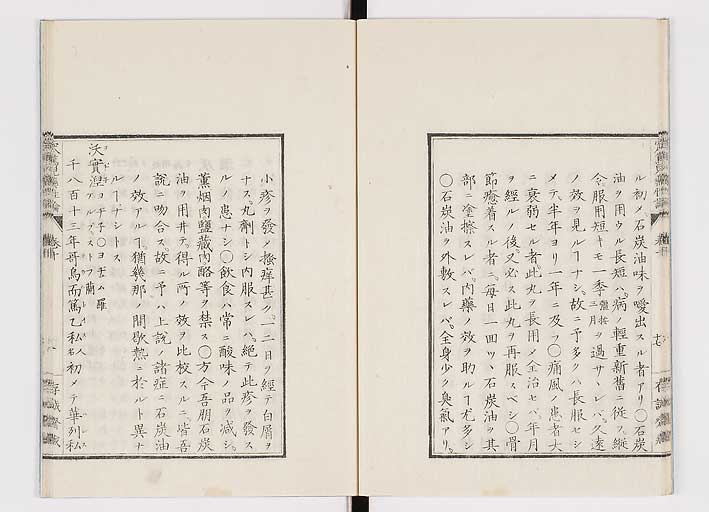 ル初メ石炭油味ヲ噯出スル者アリ〇石炭
油ヲ用ウル長短ハ。病ノ輕重新舊ニ從フ。縱
令服用短キモ一季三月ヲ過サヽレバ。久遠
ノ效ヲ見ルヿナシ。故ニ予多クハ長服セシ
メテ半年ヨリ一年ニ及フ〇痛風ノ患者大
ニ衰弱セル者此丸ヲ長用ノ全治セバ。年月
ヲ經ルノ後又必ス此丸ヲ再服スベシ〇骨
節癒着スル者ニ。每日一回ツヽ石炭油ヲ其
部ニ塗擦スレバ。内藥ノ效ヲ助ルヿ尤多シ
〇石炭油ヲ外敷スレバ。全身少ク臭氣アリ。
小疹ヲ發ノ搔痒甚ク。一二日ヲ經テ白屑ヲ
ナス。丸劑トシ内服スレハ。絶テ此疹ヲ發ス
ルノ患ナシ〇飲食ハ常ニ酸味ノ品ヲ減シ。
薰烟肉鹽藏肉酪等ヲ禁ス〇方今吾朋石炭
油ヲ用井テ。得ル所ノ效ヲ比校スルニ。皆吾
説ニ吻合ス。故ニ予ハ上説ノ諸症ニ石炭油
ノ效アルヿ。猶幾那ノ間歇熱ニ於ルト異ナ
ルヿナシトス
沃實涅
千八百十三年哥烏而篤乙私人名初メテ華列私